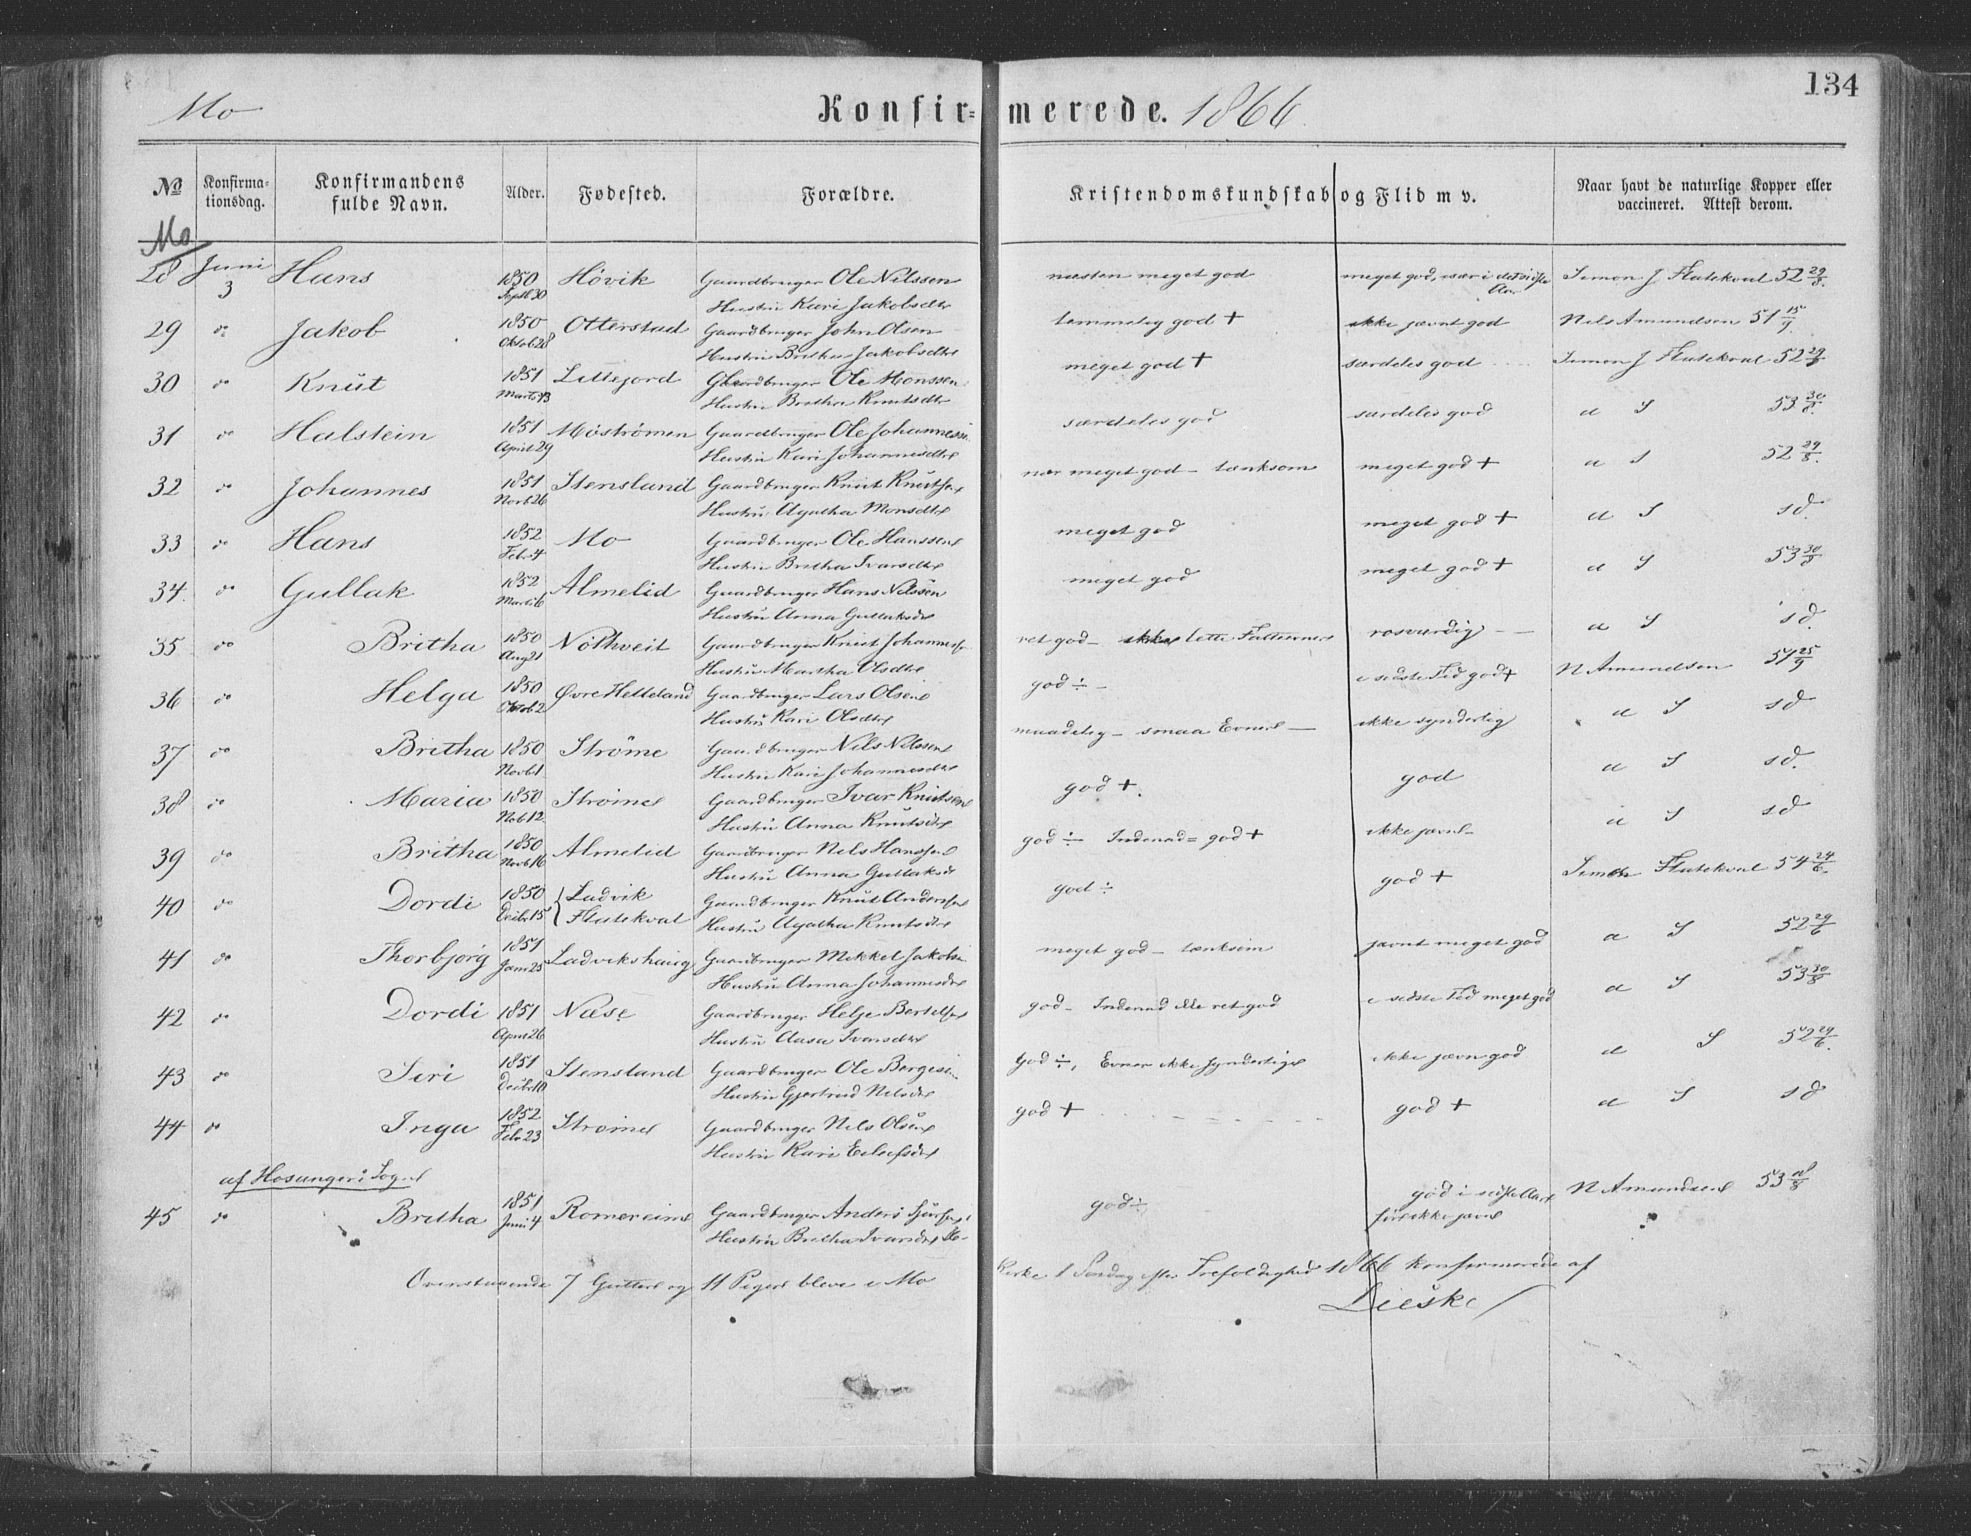 134
Mo Konfirmerede. 1866
№ Konfirmationsdag. Konfirmandens fulde Navn. Alder. Fødested. Forældre. Kristendomskundskab og Flid m v. Naar havt de naturlige Kopper eller vaccineret. Attest derom.
Mo
28 Juni 3 Hans 1850 Septb 30 Hövik Gaardbruger Ole Nilssen næsten meget god meget god, især i det sidste Aar Simon J Flatekval 52 29/8.
Hustru Kari Jakobsdtr
29 do Jakob 1850 Oktob 28 Otterstad Gaardbruger John Olsen temmelig god + ikke jævnt god Nels Amundsen 51 15/9
Hustru Britha Jakobsdtr
30 do Knüt 1851 Marts 13 Lillejord Gaardbruger Ole Monssen meget god + særdeles god Simon J Flatekval 52 29/8
Hustru Britha Knutsdtr
31 do Halstein 1851 April 29 Möströmen Gaardbruger Ole Johannessen særdeles god særdeles god a S 53 30/8.
Hustru Kari Johannesdtr
32 do Johannes 1851 Novb 26 Stensland Gaardbruger Knut Knutsen nær meget god - tænksom meget god + a S 52 29/8.
Hustru Agatha Monsdtr
33 do Hans 1852 Febr 4 Mo Gaardbruger Ole Hanssen meget god meget god + a S s d.
Hustru Britha Ivarsdtr
34. do Gullak 1852 Marts 6 Almelid Gaardbruger Hans Nilssen meget god meget god + a S 53 30/8
Hustru Anna Gullaksdr
35 do Britha 1850 Aug 21 Nöthveit Gaardbruger Knut Johannessen ret god - ikke lette Fatteevner rosværdig - - a S s d.
Hustru Martha Olsdtr
36 do Helga 1850 Oktob 2 Øvre Helleland Gaardbruger Lars Olsen god ÷ - i sidste Tid god + N Amundsen 51 25/9
Hustru Kari Olsdtr
37 do Britha 1850 Novb 1 Ströme Gaardbruger Nils Nilssen maadelig - smaa Evner - ikke synderlig a S s d
Hustru Kari Johannesdtr
38 do Maria 1850 Nob 12 Ströme Gaardbruger Ivar Knutsen god +. god a S s d.
Hustru Anna Knutsdtr
39 do Britha 1850 Novb 16 Almelid Gaardbruger Nels Hanssen god ÷ Indenad = god + ikke jævn - a S s d
Hustru Anna Gullaksdr
40 do Dordi 1850 Decbr 15 { Ladvik Flatekval Gaardbruger Knut Anderssen god ÷ god + Simon Flatekval 54 24/6.
Hustru Agatha Knutsdtr
41 do Thorbjørg 1851 Janr 25 Ladvikshaug Gaardbruger Mikkel Jakobsen meget god - tænksom jævnt meget god a S 52 29/6
Hustru Anna Johannesdtr
42 do Dordi 1851 April 26 Næse Gaardbruger Helje Bertelsen god - Indenad ikke ret god i sidste Tid meget god a S 53 30/8
Hustru Aasa Ivarsdtr
43 do Siri 1851 Decbr 10 Stensland Gaardbruger Ole Bergesen god ÷, Evner ikke synderlige ikke jævn god a S 52 29/6.
Hustru Gjertrud Nelsdtr
44 do Inga 1852 Febr 23 Strømme Gaardbruger Nels Olsen god + god + a S s d
Hustru Kari Eilefsdtr
af Hosangers Sogn
45 do Britha 1851 Juni 4 Romereim Gaardbruger Anders Sjursen god ÷ god i sidste Aar, før ikke jævn N Amundsen 53
Hustru Britha Ivarsdtr
Ovenstaaende 7 Gutter og 11 Piger bleve i Mo Kirke 1 Søndag efter Trefoldighed 1866 konfirmerede af
Lieske